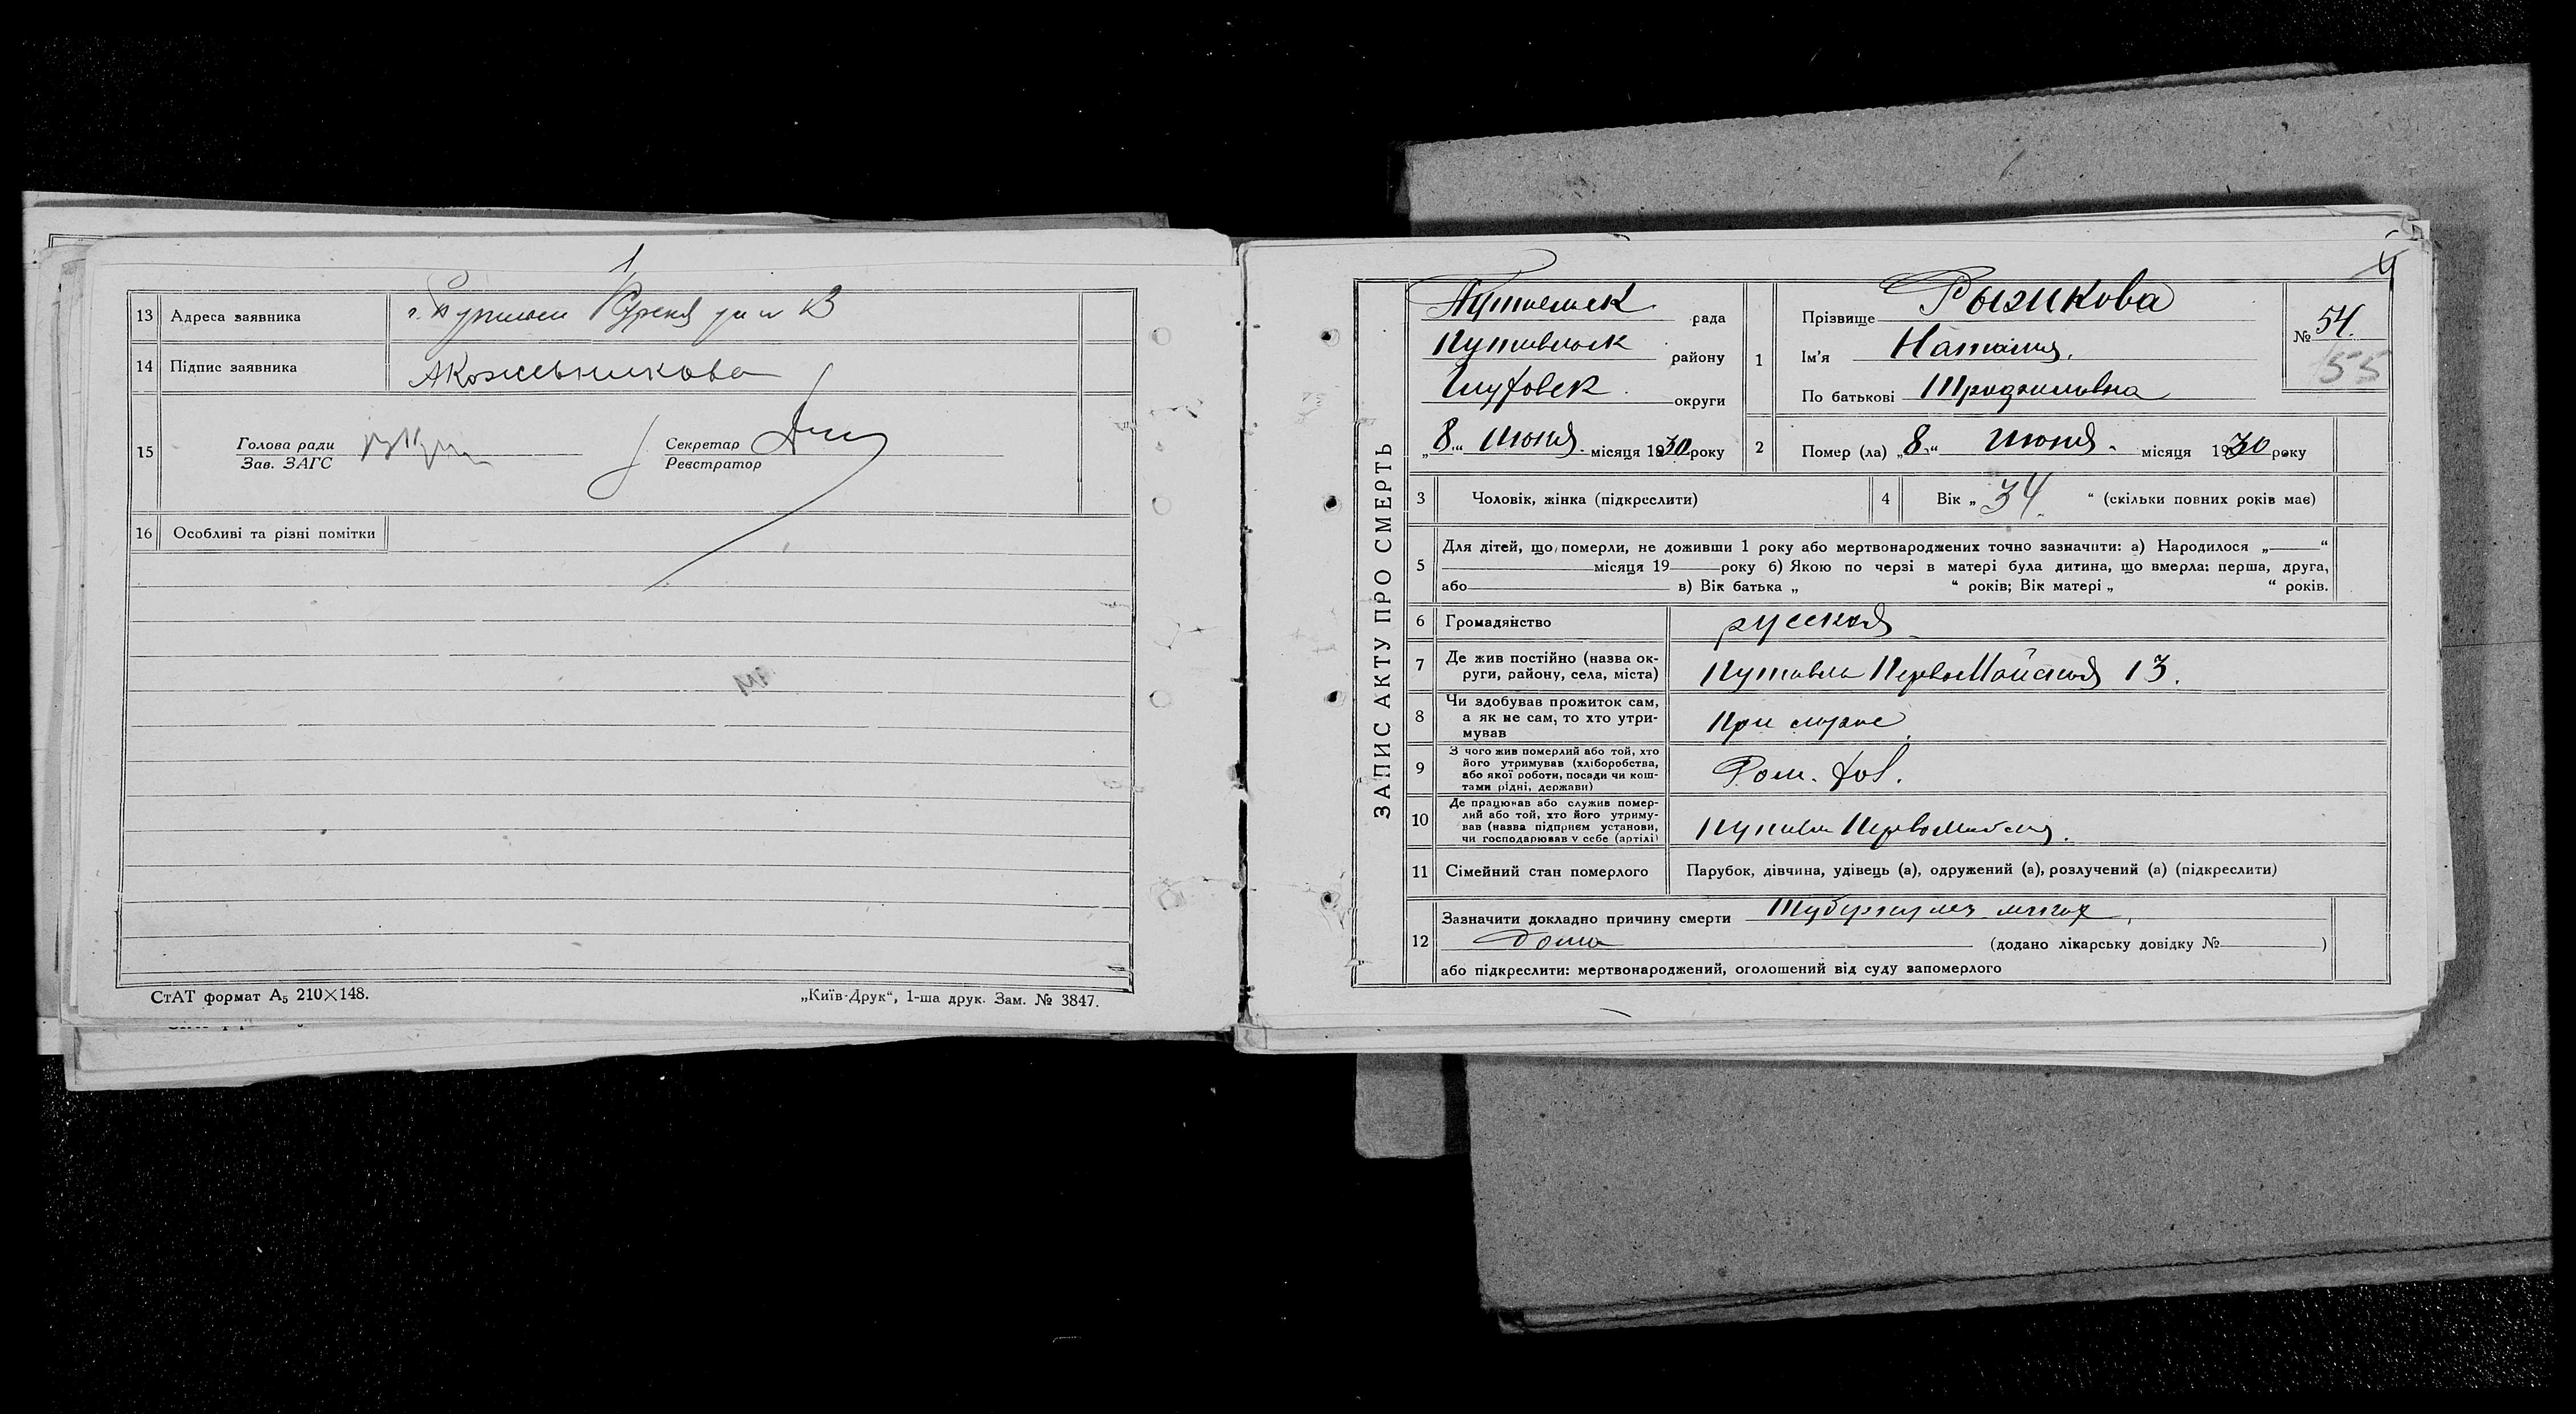 13 Адреса заявника
14 Підпис заявника АКожевникова
15 Голова ради
Зав. ЗАГС
Секретар
Реєстратор
16 Особливі та різні помітки
СтАТ формат А5 210×148.
„Київ-Друк“, 1-ша друк. Зам. № 3847.
ЗАПИС АКТУ ПРО СМЕРТЬ
рада
Путивльск району
округи
„8“ Июня місяця 1930 року
1 Прізвище Рызикова
Ім'я Наталия
По батькові
№ 54.
55
2 Помер (ла) „8“ Июня місяця 1930 року
3 Чоловік, жінка (підкреслити)
4 Вік „34“ (скільки повних років має)
5 Для дітей, що померли, не доживши 1 року або мертвонароджених точно зазначити: а) Народилося „ “
місяця 19 року б) Якою по черзі в матері була дитина, що вмерла: перша, друга,
або в) Вік батька „ “ років; Вік матері „ “ років.
6 Громадянство русская
7 Де жив постійно (назва ок-
руги, району, села, міста) Путивль ПервоМайская 13.
8 Чи здобував прожиток сам,
а як не сам, то хто утри-
мував При муже
9 З чого жив померлий або той, хто
його утримував (хліборобства,
або якої роботи, посади чи кош-
тами рідні, держави)
10 Де працював або служив помер-
лий або той, хто його утриму-
вав (назва підприєм установи,
чи господарював у себе (артілі) Путивль Первомайская.
11 Сімейний стан померлого Парубок, дівчина, удівець (а), одружений (а), розлучений (а) (підкреслити)
12 Зазначити докладно причину смерти Туберкулез легких,
дома (додано лікарську довідку № )
або підкреслити: мертвонароджений, оголошений від суду запомерлого